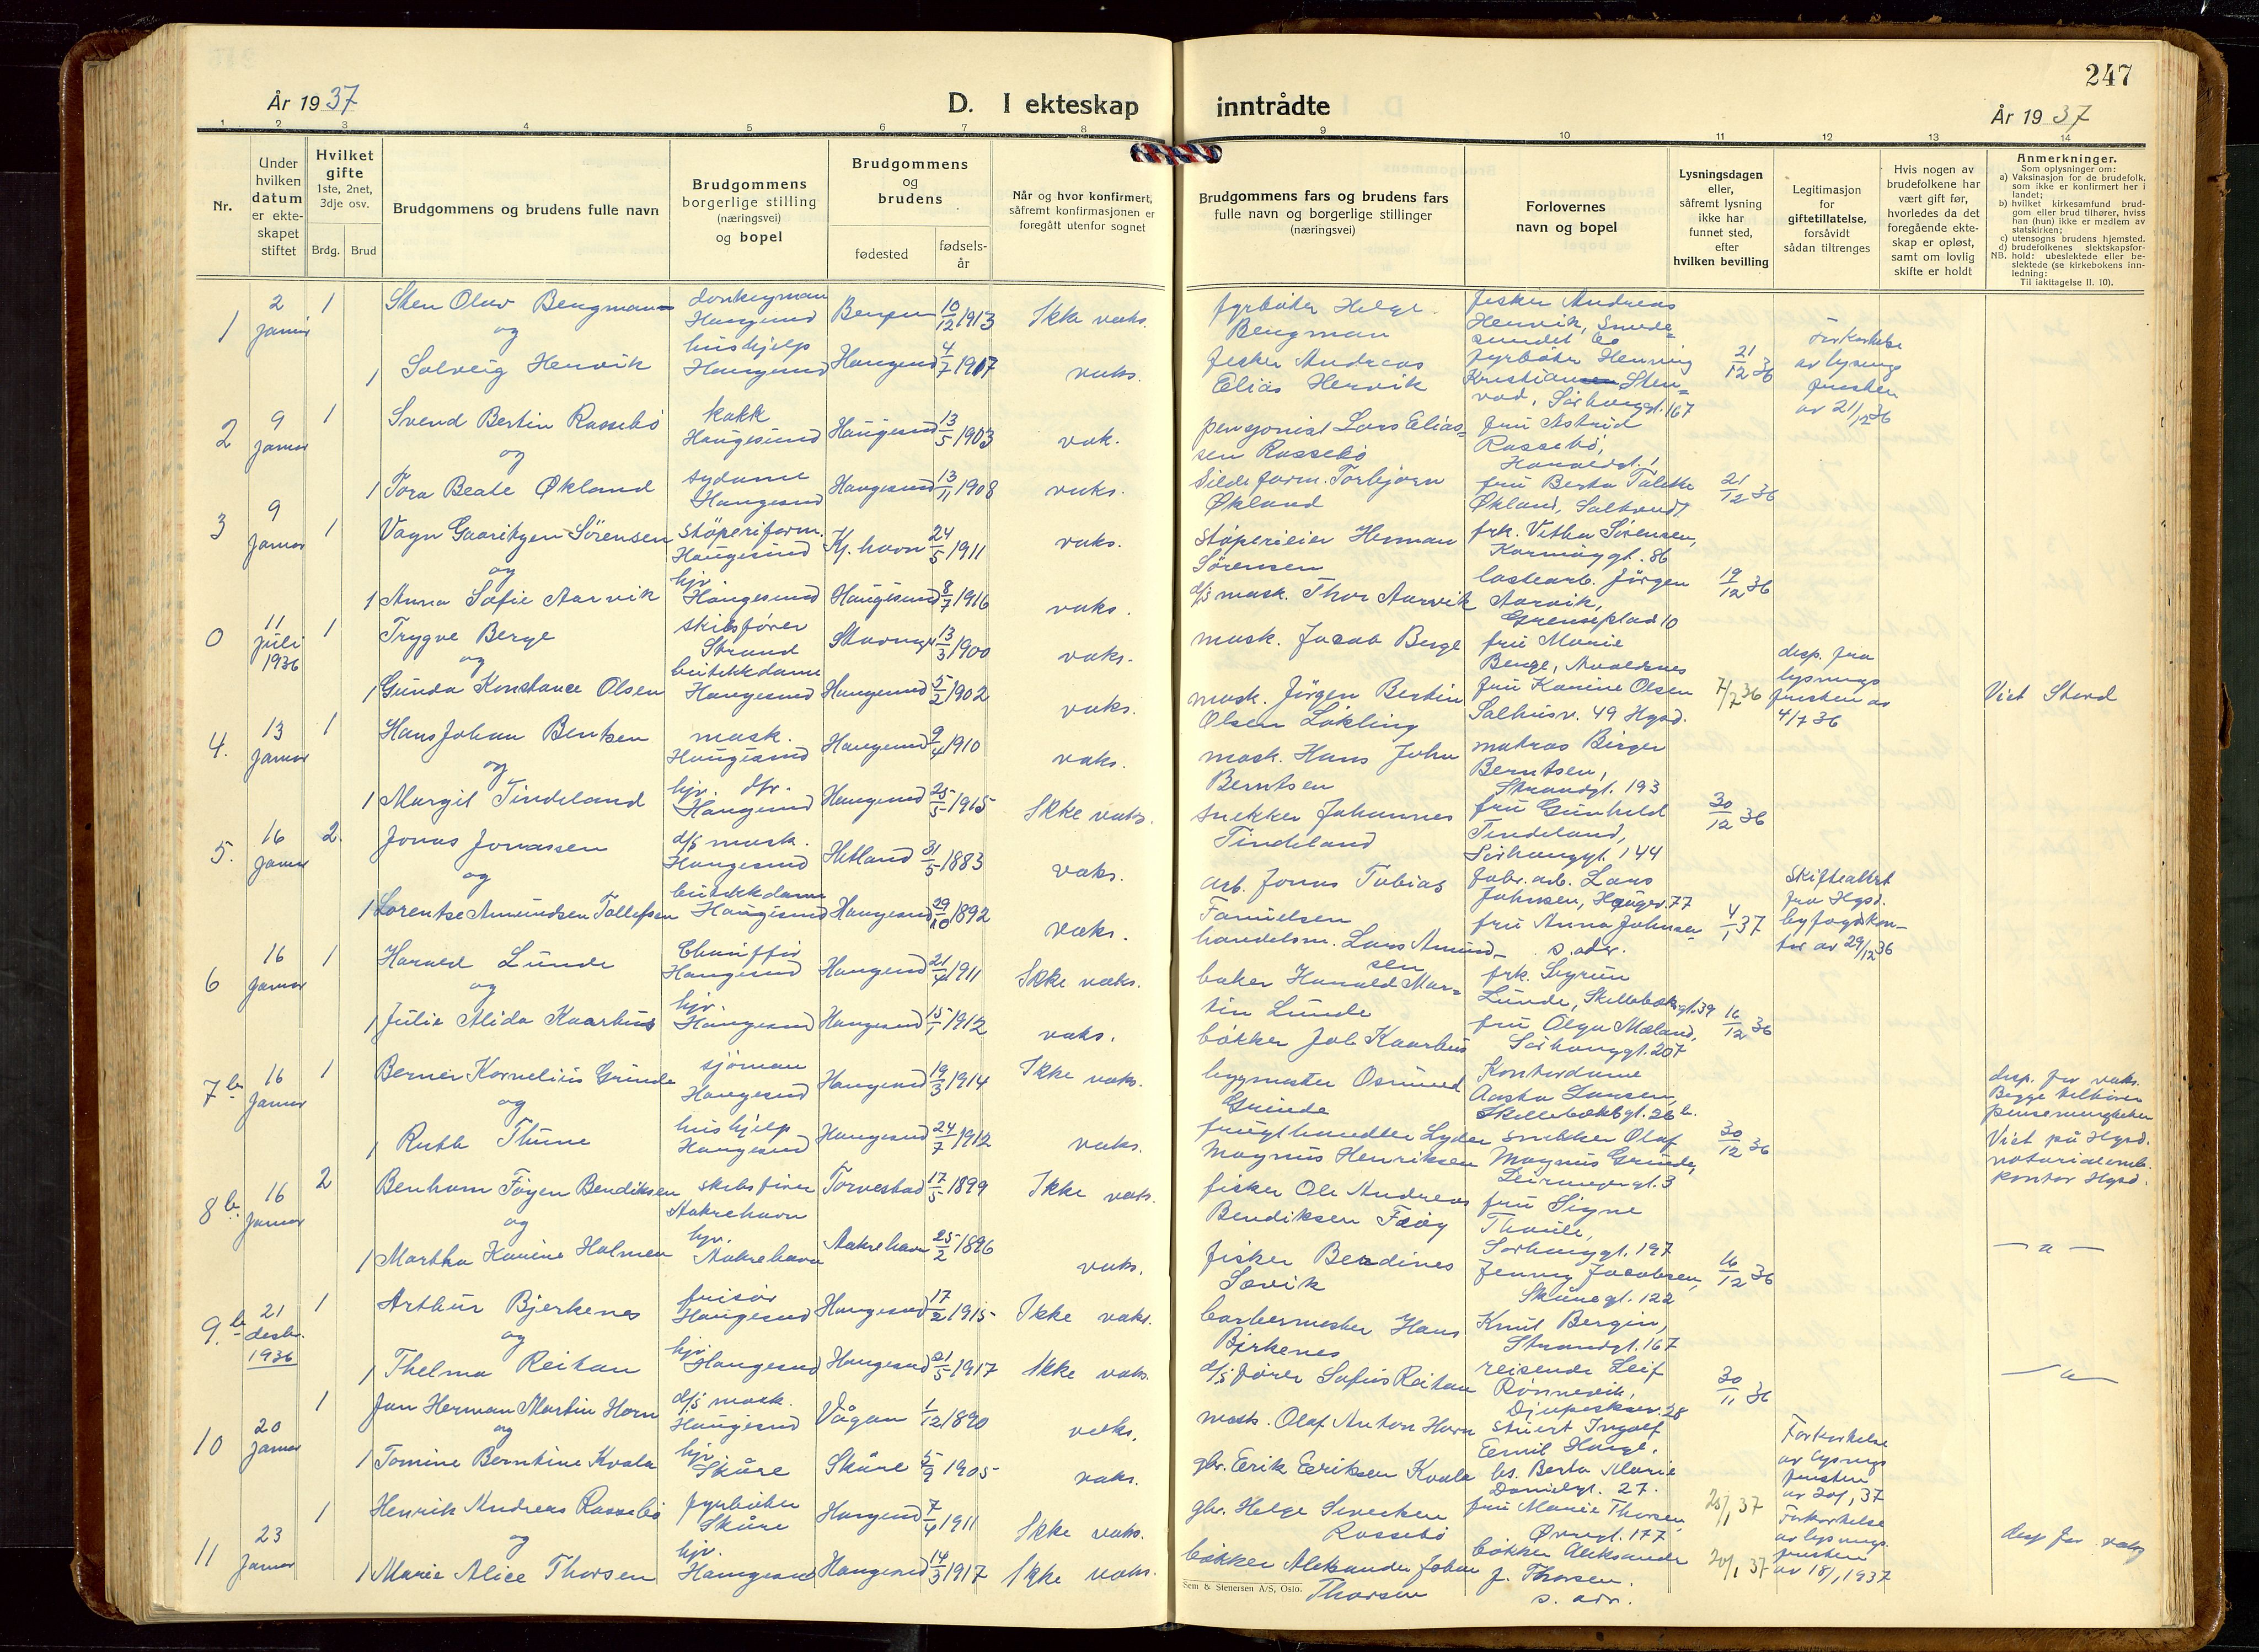 247
År 1937
D. I ekteskap inntrådte
År 1937
1 2 3 4 5 6 7 8 9 10 11 12 13 14
Nr.
Under
hvilken
datum
er ekte-
skapet
stiftet
Hvilket
gifte
1ste, 2net,
3dje osv.
Brdg. Brud
Brudgommens og brudens fulle navn
Brudgommens
borgerlige stilling
(næringsvei)
og bopel
Brudgommens
og
brudens
fødested
fødsels-
år
Når og hvor konfirmert,
såfremt konfirmasjonen er
foregått utenfor sognet
Brudgommens fars og brudens fars
fulle navn og borgerlige stillinger
(næringsvei)
Forlovernes
navn og bopel
Lysningsdagen
eller,
såfremt lysning
ikke har
funnet sted,
efter
hvilken bevilling
Legitimasjon
for
giftetillatelse,
forsåvidt
sådan tiltrenges
Hvis nogen av
brudefolkene har
vært gift før,
hvorledes da det
foregående ekte-
skap er opløst,
samt om lovlig
skifte er holdt
Anmerkninger.
Som oplysninger om:
a) Vaksinasjon for de brudefolk,
som ikke er konfirmert her i
landet;
b) hvilket kirkesamfund brud-
gom eller brud tilhører, hviss
han (hun) ikke er medlem av
statskirken;
c) utensogns brudens hjemsted.
d) brudefolkenes slektskapsfor-
NB. hold: ubeslektede eller be-
slektede (se kirkebokens inn-
ledning:
Til iakttagelse II. 10).
1
2 januar
1
Sten Olav Bengman
og
1 Solveig Hervik
donkeyman
Haugesund
hushjelp
Haugesund
Bergen 10/12 1913
Haugesund 4/7 1917
Ikke vaks.
vaks.
fyrbøter Helge
Bengman
fisker Andreas
Elias Hervik
fisker Andreas
Hervik, Smede-
sundet 60
fyrbøter Henning
Kristiansen Sten-
vod, Sørhauggt. 167
21/12 36
Forkortelse
av lysnings
fristen
av 21/12 36
2
9 januar
1
Svend Bertin Rossebö
og
1 Tora Beate Økland
kokk
Haugesund
sydame
Haugesund
Haugesund 13/5 1903
Haugesund 13/11 1908
vak.
vaks.
pensjonist Lars Elias-
sen Rossebö
Sildeform. Torbjørn
Økland
fru Astrid
Rossebö,
Haraldsgt. 1
fru Berta Talette
Økland, Saltvedt
21/12 36
3
9 januar
1
Vagn Gaaritzen Sörensen
og
1 Anna Sofie Aarvik
støperiform.
Haugesund
hjv.
Haugesund
Kj.havn 24/5 1911
Haugesund 8/7 1916
vaks.
vaks.
støperieier Herman
Sörensen
d/s mask. Thor Aarvik
frk. Vitha Sörensen,
Karmöygt. 86
lostearb. Jörgen
Aarvik,
Grenseplad 10
19/12 36
0
11 juli 1936
1
Trygve Berge
og
1 Gunda Konstance Olsen
skibsfører
Strand
butikkdame
Haugesund
Stavanger 13/3 1900
Haugesund 5/2 1902
vaks.
vaks.
mask. Jacob Berge
mask. Jörgen Bertin
Olsen Lökling
fru Marie
Berge, Avaldsnes
fru Karine Olsen
Salhusv. 49 Hgsd.
7/7 36
disp. fra
lysnings
fristen av
4/7 36
Viet Stord
4.
13 januar
1
Hans Johan Bentsen
og
1 Margit Tindeland
mask.
Haugesund
hjv. dtr.
Haugesund
Haugesund 9/4 1910
Haugesund 25/5 1915
vaks.
Ikke vaks.
mask. Hans John
Berntsen
snekker Johannes
Tindeland
matros Birger
Berntsen,
Strandgt. 193
fru Gunhild
Tindeland,
Sörhauggt. 144
30/12 36
5.
16 januar
2.
Jonas Jonassen
og
1 Lorentse Amundsen Tollefsen
d/s mask.
Haugesund
butikkdame
Haugesund
Hetland 31/5 1883
Haugesund 29/10 1892
vaks.
vaks.
arb. Jonas Tobias
Famuelsen
handelsm. Lars Amund-
sen
fabr. arb. Lars
Johnsen, Haugev. 77
fru Anna Johnsen
s. adr.
4/1 37
Skifteattest
fra Hgsd.
byfogdkon-
tor av 29/12 36
6
16 januar
1
Harald Lunde
og
1 Julie Alida Kaarhus
Chauffør
Haugesund
hjv.
Haugesund
Haugesund 21/4 1911
Haugesund 15/1 1912
Ikke vaks.
vaks.
baker Harald Mar-
tin Lunde
bøkker Job Kaarhus
frk. Sigrun
Lunde, Skillebekkgt. 39
fru Olga Mæland,
Sörhauggt. 207
16/12 36
7 b
16 januar
1
Berner Kornelius Grinde
og
1 Ruth Thune
sjöman
Haugesund
hushjelp
Haugesund
Haugesund 19/3 1914
Haugesund 24/7 1912
Ikke vaks.
vaks.
byggmester Osmund
Grinde
frugthandler Lyder
Magnus Henriksen
Kontordame
Aasta Larsen,
Skillebekkgt. 26 b.
snekker Olaf
Magnus Grinde,
3
30/12 36
disp. for vaks.
Begge tilhörer
pinsemenigheten
Viet på Hgsd.
notarialemb.
kontor Hgsd.
8 b.
16 januar
2
Benham Föyen Bendiksen
og
1 Martha Karine Holmen
skibsfører
Aakrehavn
hjv.
Aakrehavn
Torvestad 17/5 1899
Aakrehavn 25/2 1896
Ikke vaks.
vaks.
fisker Ole Andreas
Bendiksen Föög
fisker Berdines
Sævik
fru Signe
Thaule,
Sörhauggt. 197
Jenny Jacobsen,
Skåregt. 122
16/12 36
— a —
9. b
21 desbr. 1936
1
Arthur Bjerkenes
og
1 Thelma Reitan
frisör
Haugesund
hjv.
Haugesund
Haugesund 17/2 1915
Haugesund 21/5 1917
Ikke vaks.
Ikke vaks.
barbermester Hans
Bjerkenes
d/s förer Sofus Reitan
Knut Bergin,
Strandgt. 167
reisende Leif
Rönnevik,
28
30/11 36
— a —
10
20 januar
1
Jan Herman Martin Horn
og
1 Tomine Berntine Kvala
d/s mask.
Haugesund
hjv.
Skåre
Vågan 1/12 1890
Skåre 5/9 1905
vaks.
vaks.
mask. Olaf Anton Horn
gbr. Erik Eriksen Kvala
stuert Ingolf
Emil Hauge.
hs. Berta Marie
27.
20/1 37
Forkortelse
av lysnings
fristen
av 20/1 37
11
23 januar
1
Henrik Andreas Rossebö
og
1 Marie Alice Thorsen
fyrböter
Skåre
hjv.
Haugesund
Haugesund 7/4 1911
Haugesund 14/3 1917
Ikke vaks.
Ikke vaks.
gbr. Helge Severken
Rossebö
bökker Aleksander Johan
Thorsen
fru Marie Thorsen,
Övregt. 177
bökker Aleksander
J. Thorsen.
s. adr.
20/1 37
Forkortelse
av lysnings
fristen
av 18/1 1937
disp for vaks
Sem & Stenersen A/S, Oslo.